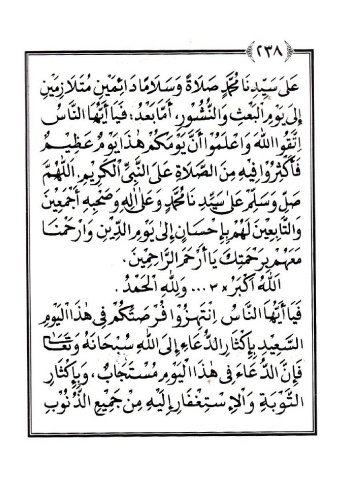 ﴿٢٣٨﴾
عَلَى سَيِّدِنَا مُحَمَّدٍ صَلَاةً وَسَلَامًا دَائِمَيْنِ مُتَلَازِمَيْنِ
إِلَى يَوْمِ الْبَعْثِ وَالنُّشُورِ. أَمَّا بَعْدُ: فَيَا أَيُّهَا النَّاسُ
اتَّقُوا اللهَ وَاعْلَمُوا أَنَّ يَوْمَكُمْ هٰذَا يَوْمٌ عَظِيمٌ
فَأَكْثِرُوا فِيهِ مِنَ الصَّلَاةِ عَلَى النَّبِيِّ الْكَرِيمِ. اللهُمَّ
صَلِّ وَسَلِّمْ عَلَى سَيِّدِنَا مُحَمَّدٍ وَعَلَى آلِهِ وَصَحْبِهِ أَجْمَعِينَ
وَالتَّابِعِينَ لَهُمْ بِإِحْسَانٍ إِلَى يَوْمِ الدِّينِ وَارْحَمْنَا
مَعَهُمْ بِرَحْمَتِكَ يَا أَرْحَمَ الرَّاحِمِينَ.
اللهُ أَكْبَرُ ×٣ ... وَلِلّٰهِ الْحَمْدُ.
فَيَا أَيُّهَا النَّاسُ انْتَهِزُوا فُرْصَتَكُمْ فِي هٰذَا الْيَوْمِ
السَّعِيدِ بِإِكْثَارِ الدُّعَاءِ إِلَى اللهِ سُبْحَانَهُ وَتَعَالَى
فَإِنَّ الدُّعَاءَ فِي هٰذَا الْيَوْمِ مُسْتَجَابٌ، وَبِإِكْثَارِ
التَّوْبَةِ وَالْاِسْتِغْفَارِ إِلَيْهِ مِنْ جَمِيعِ الذُّنُوبِ